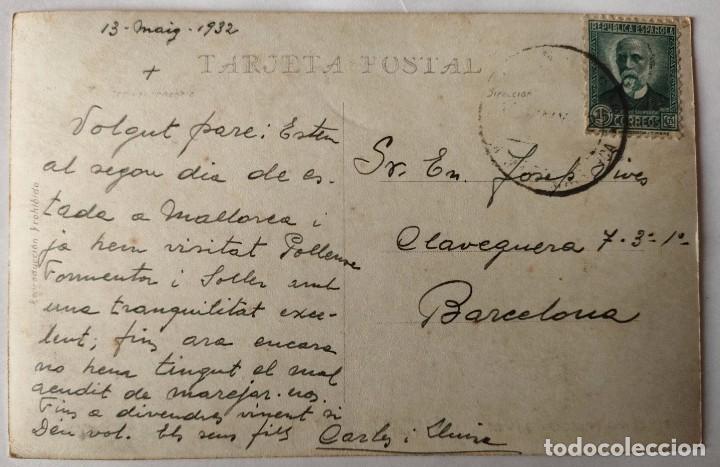 13-maig-1932
+
TARJETA POSTAL
DIRECCION
REPUBLICA ESPAÑOLA
15 CORREOS
Reproducción Prohibida
Volgut pare: Estem
al segon dia de es-
tada a Mallorca i
ja hem visitat Pollensa
Formentor i Soller amb
una tranquilitat exce-
lent; fins ara encara
no hem tingut el mal
acudit de marejar-nos.
Fins a divendres vinent si
Déu vol. Els seus fills Carles i Lluisa
Sr. En. Josep Vives
Claveguera 7-3º-1º
Barcelona
todocoleccion.net